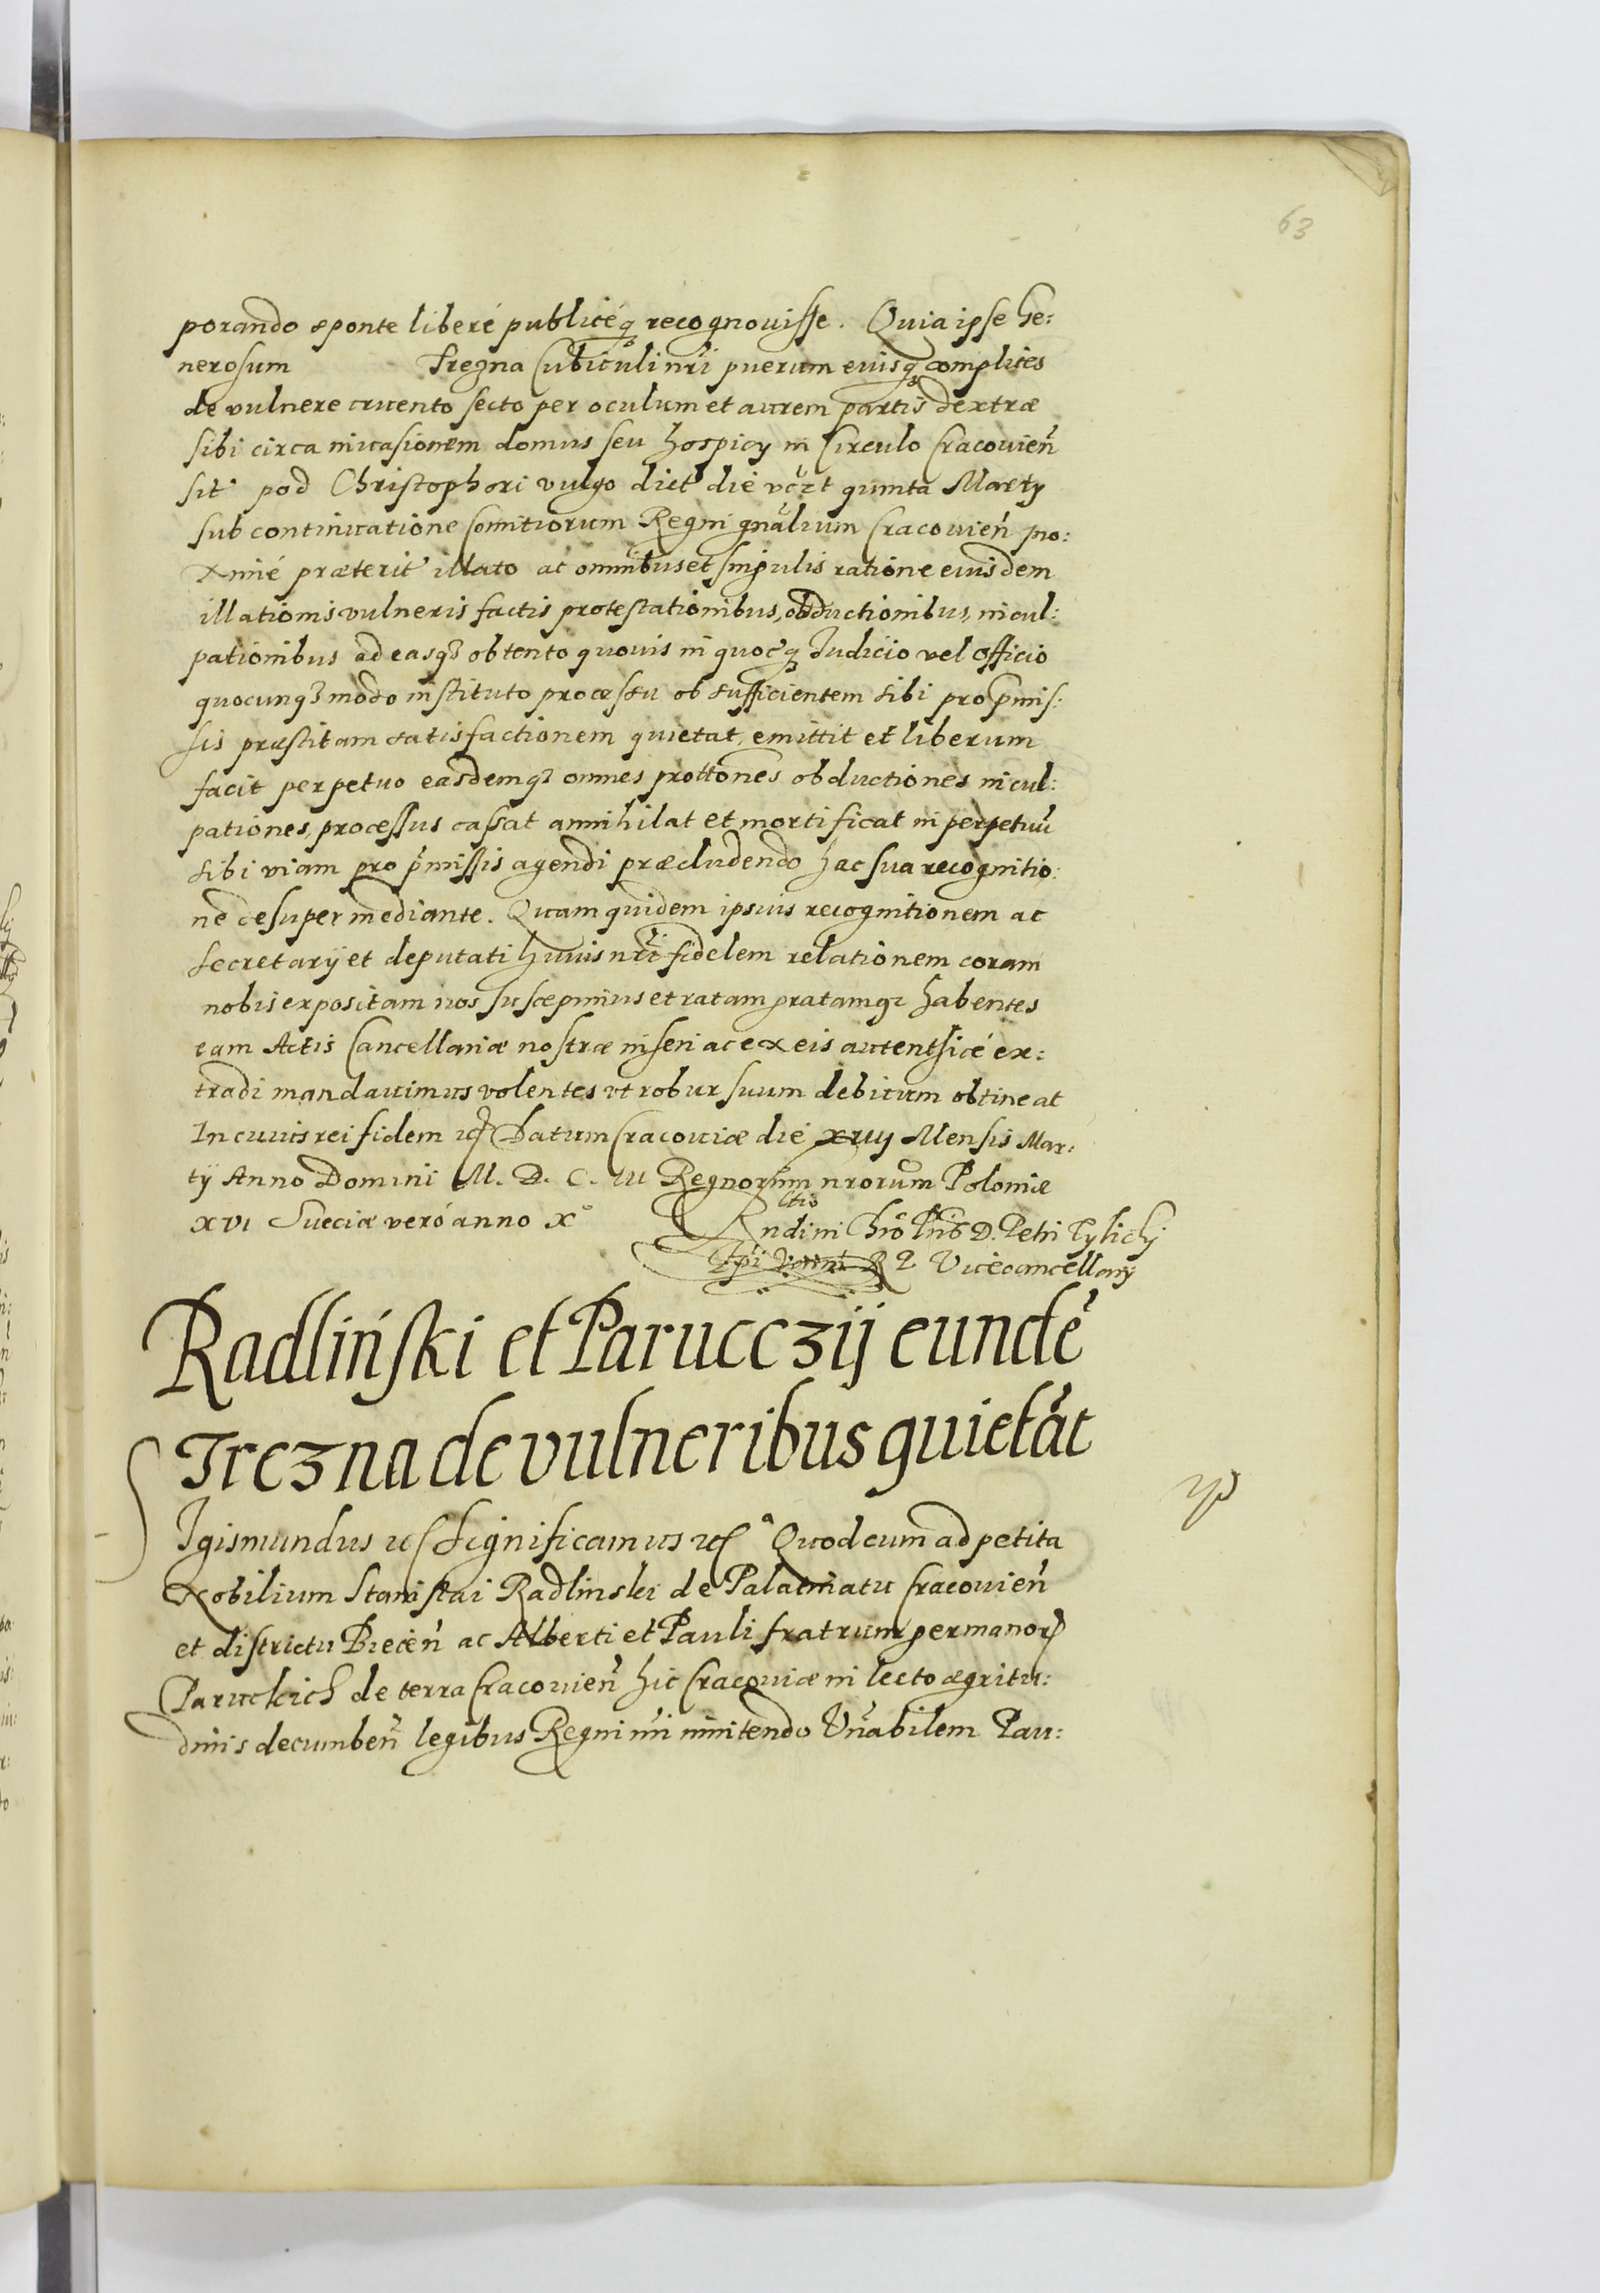 63
porando sponte liberé publicéq recognouisse. Quia ipse Ge:
nerosum Trezna Cubiculi nri puerum eiusq complices
de vulnere cruento secto per oculum et aurem partis dextræ
sibi circa inuasionem domus seu hospicy in Circulo Cracouien
sit pod Christophori vulgo dict die quinta Marty
sub continuatione Comitiorum Regni gnalium Cracouien pro:
ximé præterit illato ac omnibus et singulis ratione eiusdem
illationis vulneris factis protestationibus, obductionibus, incul:
pationibus ad easq obtento quouis in quocq Iudicio vel officio
quocunq modo instituto processu ob sufficientem sibi pro pmis:
sis præstitam satisfactionem quietat, emittit et liberum
facit perpetuo easdemq omnes prottones obductiones incul:
pationes, processus cassat annihilat et mortificat in perpetuu
sibi viam pro pmissis agendi præcludendo hac sua recognitio:
ne desuper mediante. Quam quidem ipsius recognitionem ac
Secretarÿ et deputati huius nri fidelem relationem coram
nobis expositam nos suscepimus et ratam gratamq habentes
eam Actis Cancellariæ nostræ inseri ac ex eis autenthicé ex:
tradi mandauimus volentes vt robur suum debitum obtineat
In cuius rei fidem Datum Cracouiæ die Mensis Mar:
tÿ Anno Domini M. D. C. III Regnorum nrorum Poloniæ
XVI Sueciæ veró anno X°
Rltio
ndi in Chro Pris D. Petri Tylicky
Epi Varm R P Vicecancellarÿ
Radlińſki et Parucczÿ eundē
Trezna de vulneribus quietāt
Sigismundus Significamus Quod cum ad petita
Nobilium Stanislai Radlinski de Palatinatu Cracouien
et districtu Biecen ac Alberti et Pauli fratrum germanor
Paruckich de terra Cracouien hic Cracouiæ in lecto ægritu:
dinis decumben legibus Regni nri innitendo Vnabilem Pau: